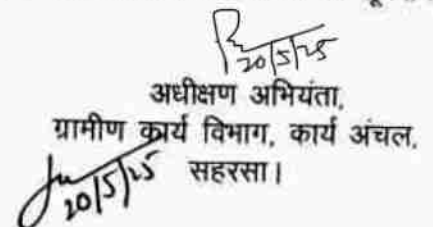 20/5/25
अधीक्षण अभियंता,
ग्रामीण कार्य विभाग, कार्य अंचल,
सहरसा।
20/5/25